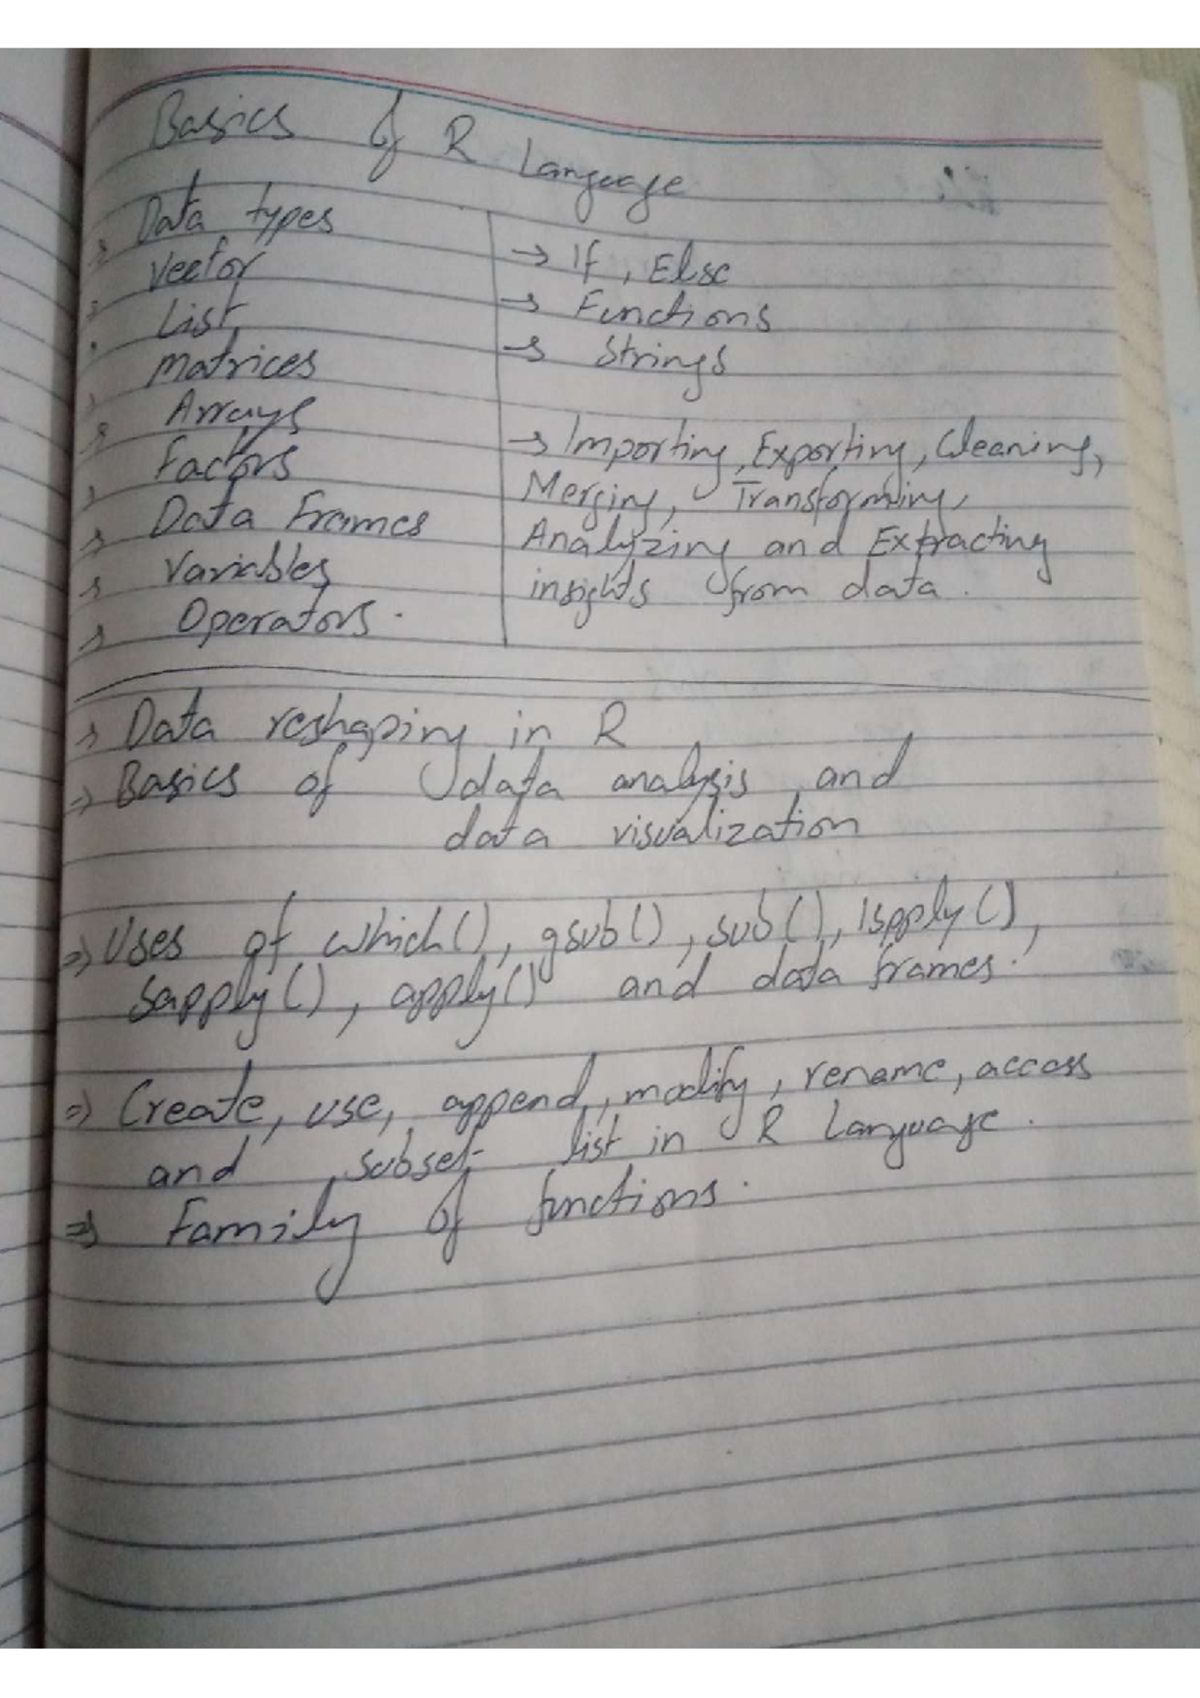 Basics of R Language
→ Data types
→ Vector
→ List
→ Matrices
→ Arrays
→ Factors
→ Data Frames
→ Variables
→ Operators.
→ If, Else
→ Functions
→ Strings
→ Importing, Exporting, Cleaning,
Merging, Transforming,
Analyzing and Extracting
insights from data.
→ Data reshaping in R
⇒ Basics of data analysis and
data visualization
⇒ Uses of which(), gsub(), sub(), lspply(),
sapply(), apply() and data frames.
⇒ Create, use, append, modify, rename, access
and subset list in R Language.
⇒ Family of functions.